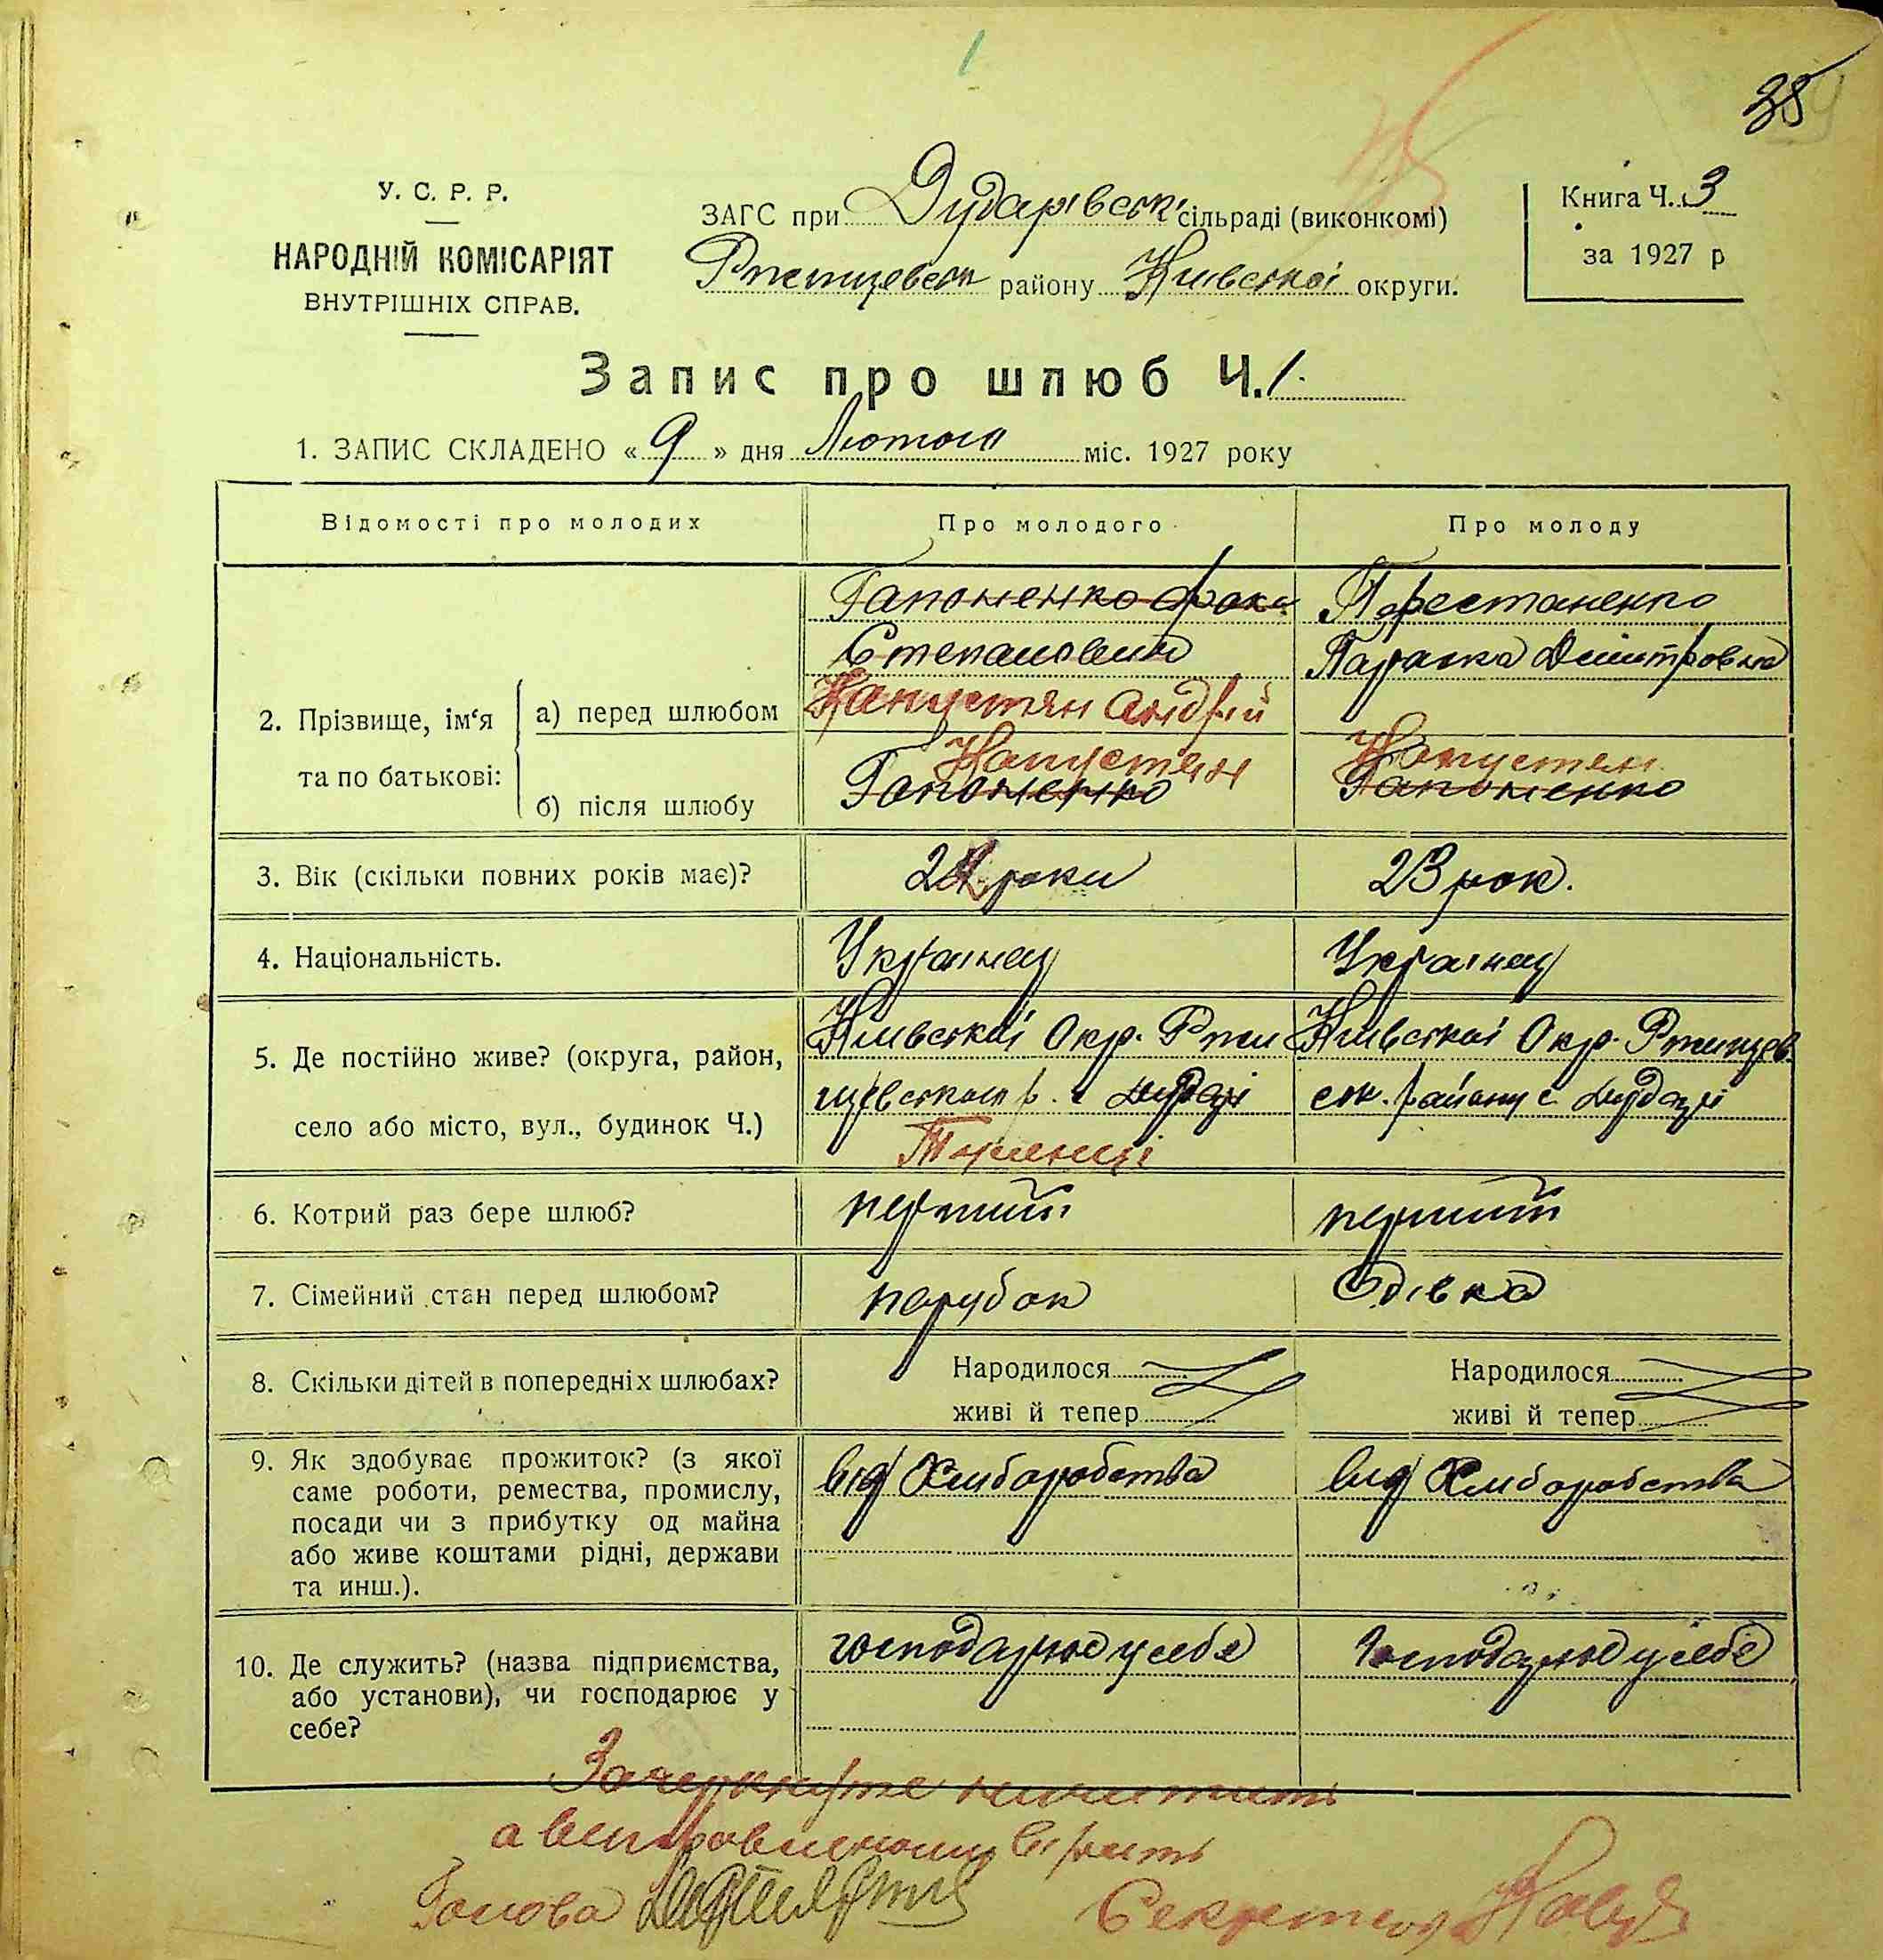 38
У. С. Р. Р.
НАРОДНІЙ КОМІСАРІЯТ
ВНУТРІШНІХ СПРАВ.
ЗАГС при Дударівськ сільраді (виконкомі)
Ржищевськ району Київської округи.
Книга Ч. 3
за 1927 р
Запис про шлюб Ч. 1.
1. ЗАПИС СКЛАДЕНО « 9 » дня Лютого міс. 1927 року
Відомості про молодих
Про молодого
Про молоду
2. Прізвище, ім‘я
та по батькові:
а) перед шлюбом
б) після шлюбу
Гапоненко
Степанович
Капустян Андрій
Капустян
Гапоненко
Перестаненко
Параска Дмитровна
Капустян
Гапоненко
3. Вік (скільки повних років має)?
роки
23 рок.
4. Національність.
Українец
Українец
5. Де постійно живе? (округа, район,
село або місто, вул., будинок Ч.)
Київської Окр. Ржи
щевського р. с Дударі
Київської Окр. Ржищев
ськ. району с. Дударі
6. Котрий раз бере шлюб?
перший
перший
7. Сімейний стан перед шлюбом?
парубок
дівка
8. Скільки дітей в попередніх шлюбах?
Народилося
живі й тепер
Народилося
живі й тепер
9. Як здобуває прожиток? (з якої
саме роботи, ремества, промислу,
посади чи з прибутку од майна
або живе коштами рідні, держави
та инш.).
від Хлиборобства
від Хлиборобства
10. Де служить? (назва підприємства,
або установи), чи господарює у
себе?
господарює у себе
Господарює у себе
Зачеркнуте нечитати
а виправленому вірить
Голова
Секретар